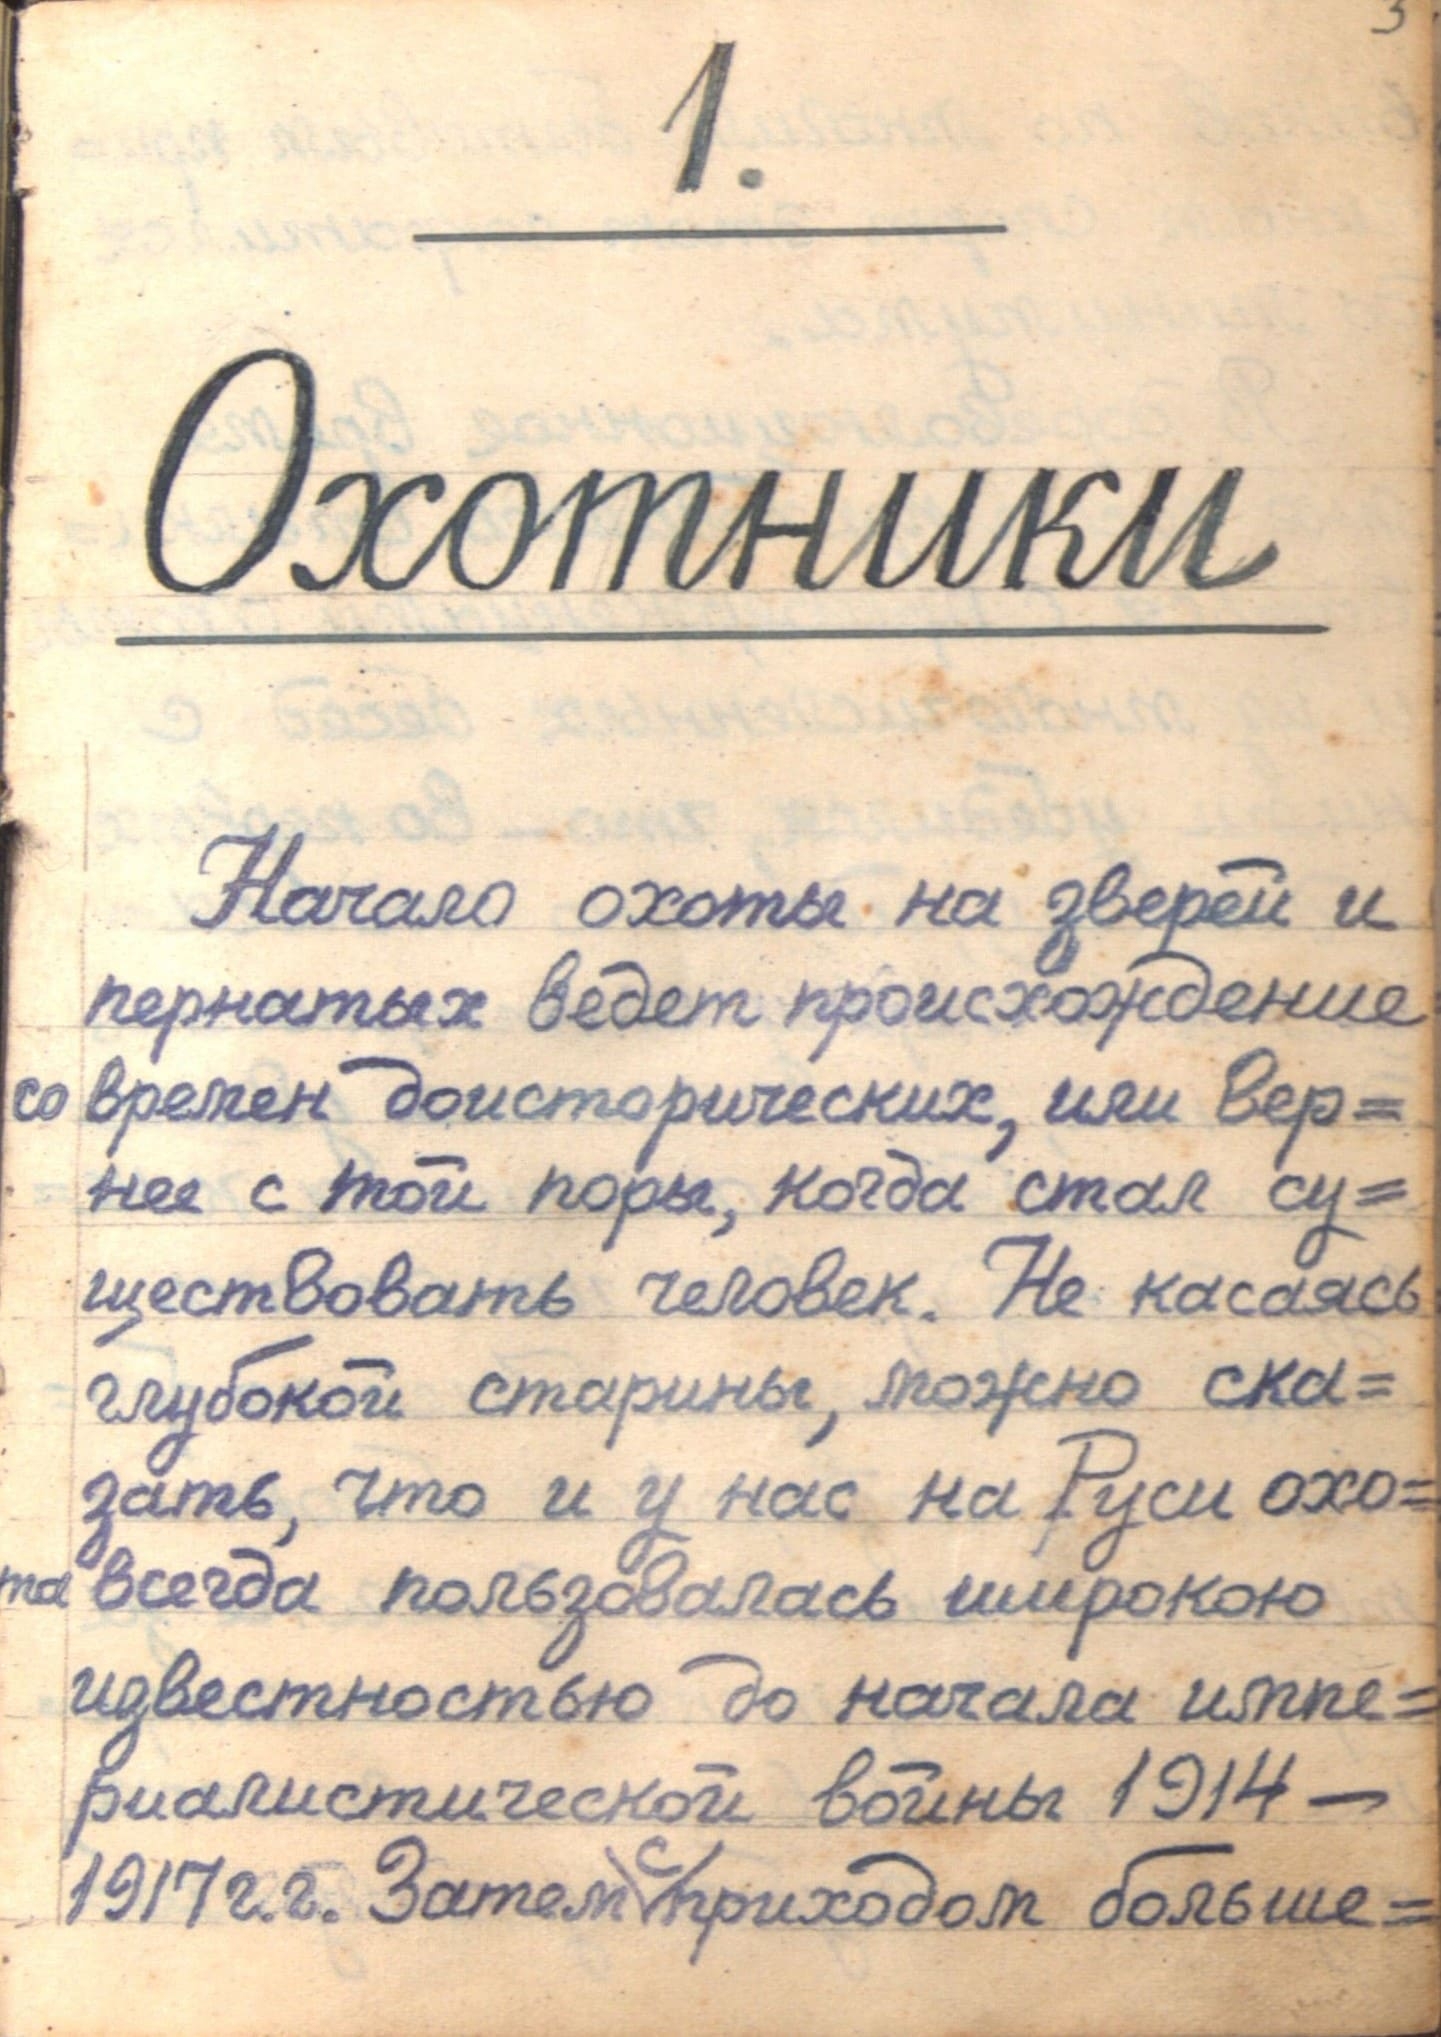 3
1.
Охотники
Начало охоты на зверей и
пернатых ведет происхождение
со времен доисторических, или вер=
нее с той поры, когда стал су=
ществовать человек. Не касаясь
глубокой старины, можно ска=
зать, что и у нас на Руси охо=
та всегда пользовалась широкою
известностью до начала импе=
риалистической войны 1914 —
1917 г.г. Затем с приходом больше=